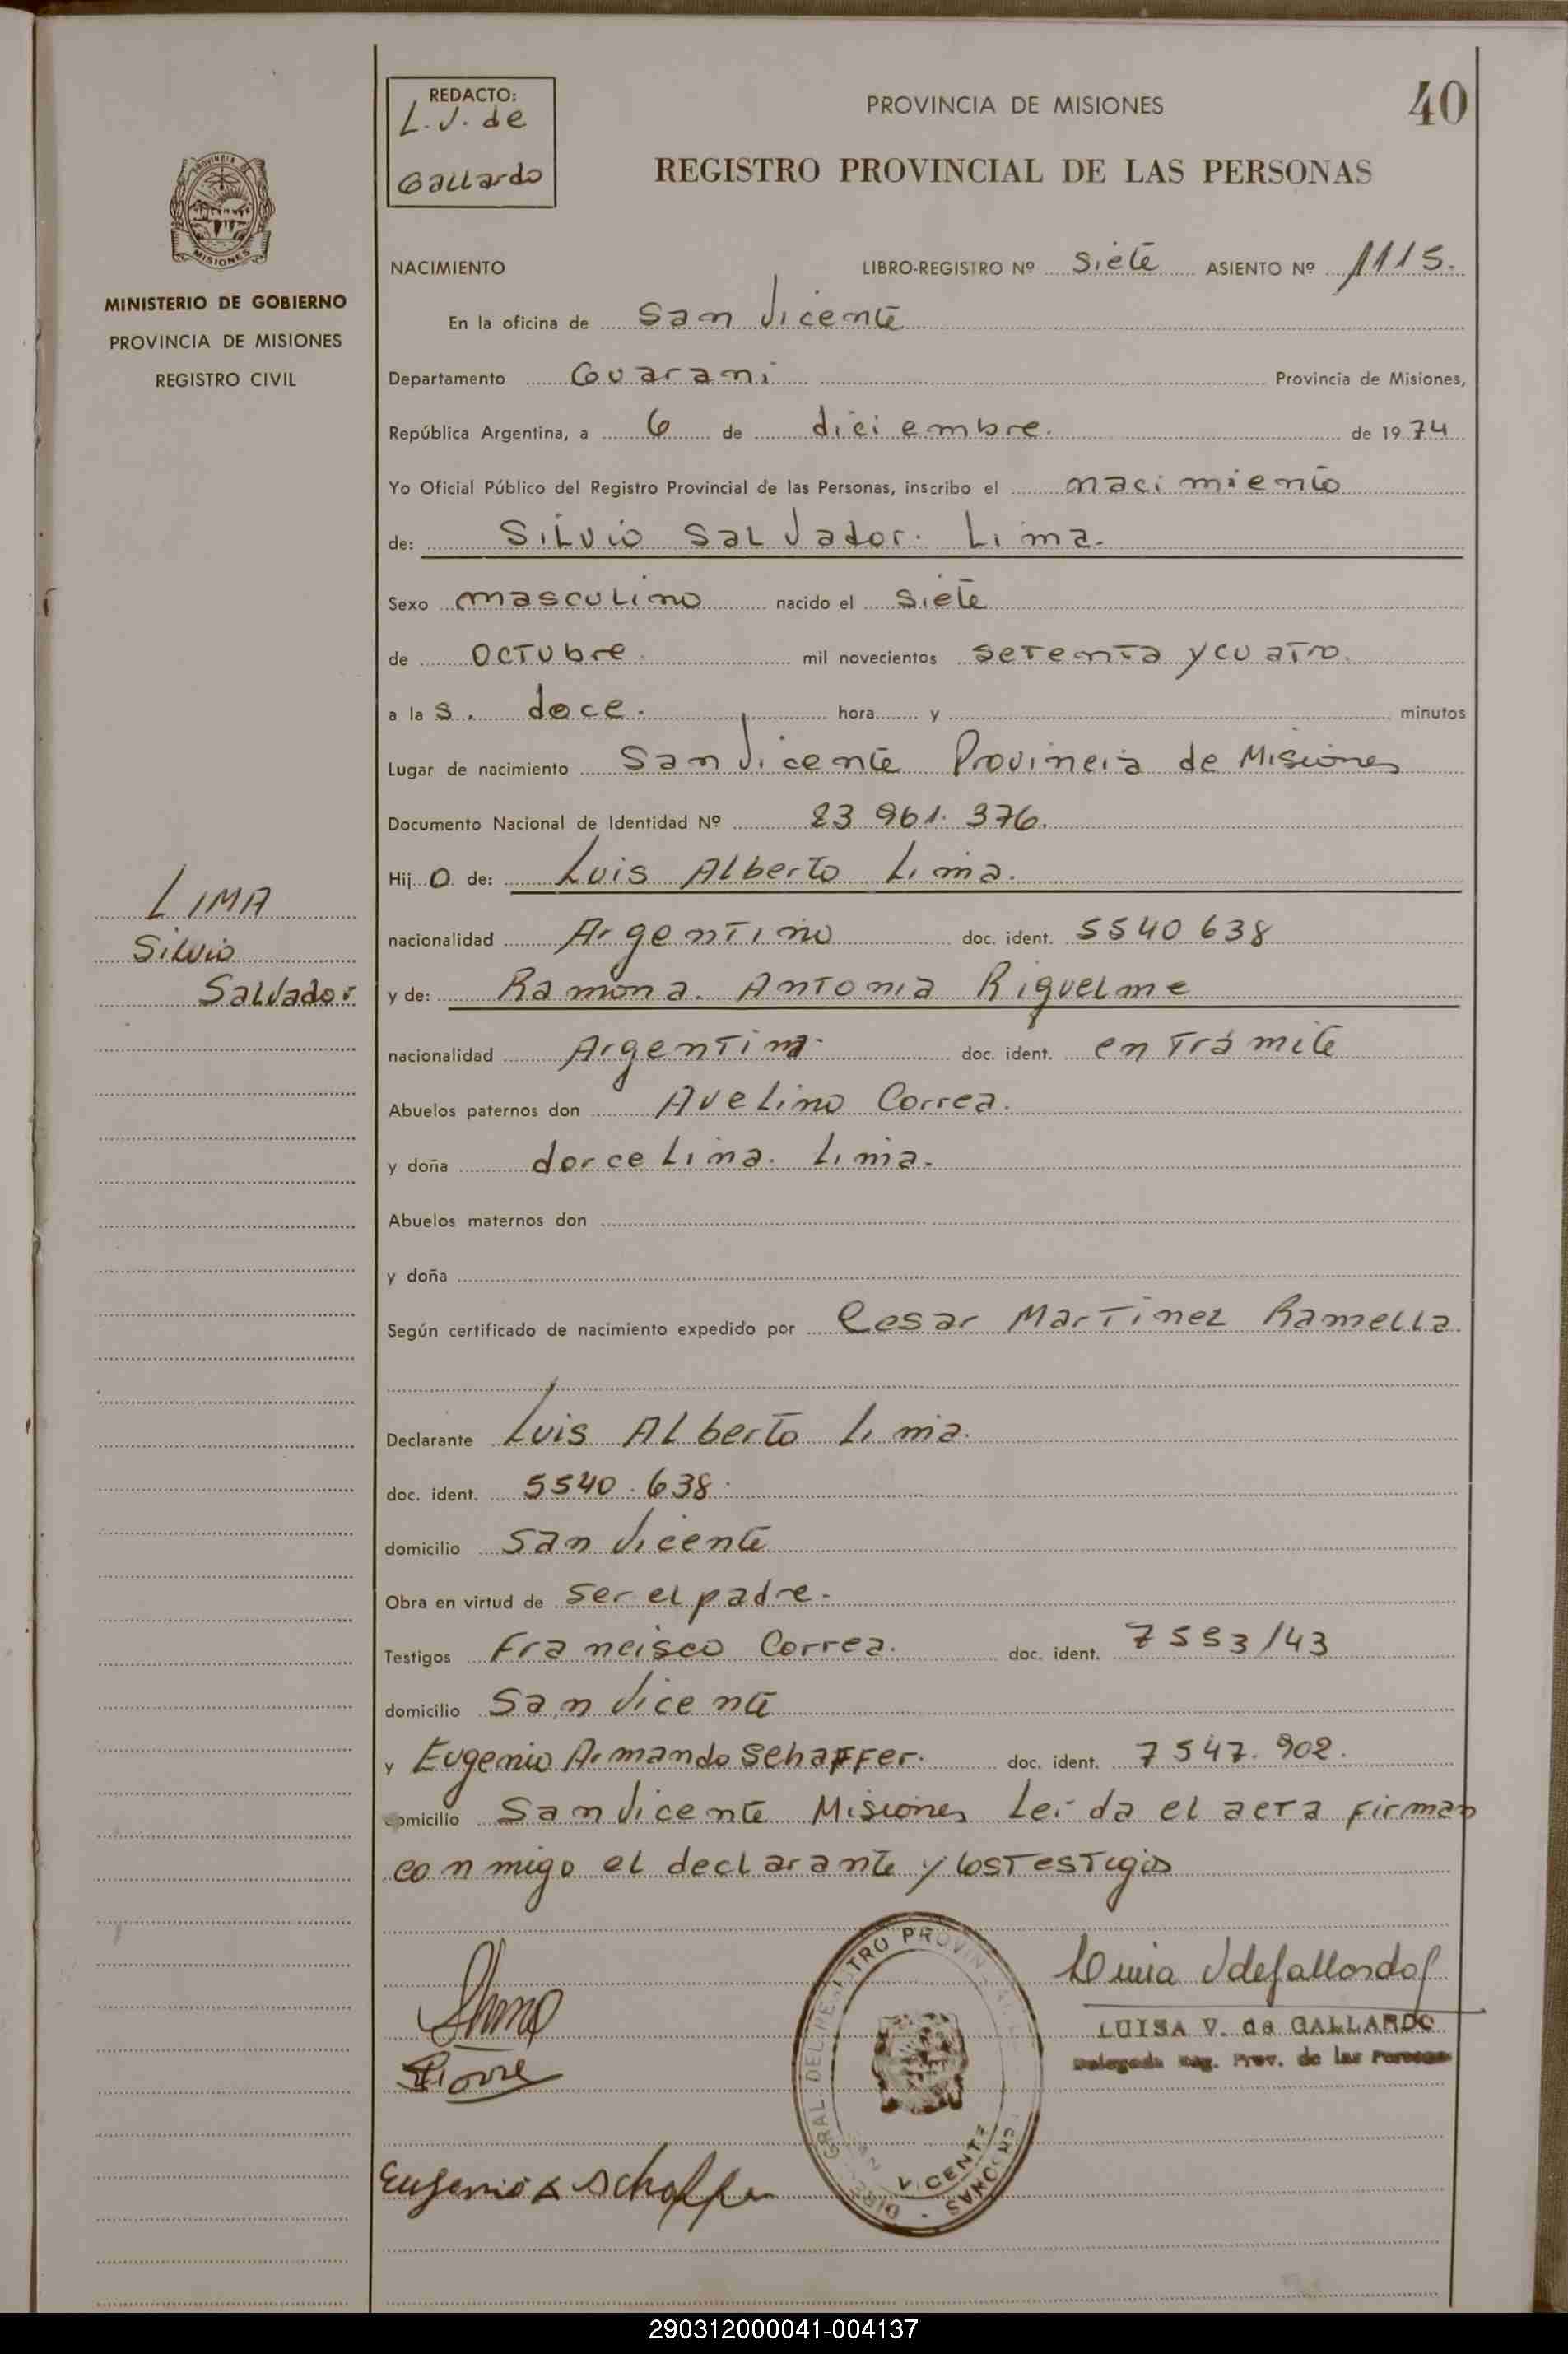 REDACTO:
L.V. de
Gallardo
PROVINCIA DE MISIONES
40
REGISTRO PROVINCIAL DE LAS PERSONAS
PROVINCIA DE
MISIONES
MINISTERIO DE GOBIERNO
PROVINCIA DE MISIONES
REGISTRO CIVIL
NACIMIENTO LIBRO-REGISTRO Nº siete ASIENTO Nº 1115.
En la oficina de San Vicente
Departamento Guarani Provincia de Misiones,
República Argentina, a 6 de diciembre. de 1974
Yo Oficial Público del Registro Provincial de las Personas, inscribo el nacimiento
de: Silvio Salvador. Lima.
Sexo masculino nacido el siete
de octubre. mil novecientos setenta y cuatro.
a las. doce. hora y minutos
Lugar de nacimiento San Vicente Provincia de Misiones
Documento Nacional de Identidad Nº 23 961. 376.
Hijo de: Luis Alberto Lima.
nacionalidad Argentino doc. ident. 5540 638
y de: Ramona. Antonia Riquelme
nacionalidad Argentina. doc. ident. en trámite
Abuelos paternos don Avelino Correa.
y doña dorcelina. Lima.
Abuelos maternos don
y doña
Según certificado de nacimiento expedido por Cesar Martinez Ramella.
Declarante Luis Alberto Lima.
doc. ident. 5540. 638.
domicilio San Vicente
Obra en virtud de ser el padre.
Testigos Francisco Correa. doc. ident. 7553/43
domicilio San Vicente
y Eugenio Armando Schaffer. doc. ident. 7547. 902.
domicilio San Vicente Misiones Leida el acta firman
conmigo el declarante y los testigos
LIMA
Silvio
Salvador
LUISA V. de GALLARDO
Delegada Reg. Prov. de las Personas
Eugenio A Schaffer
290312000041-004137